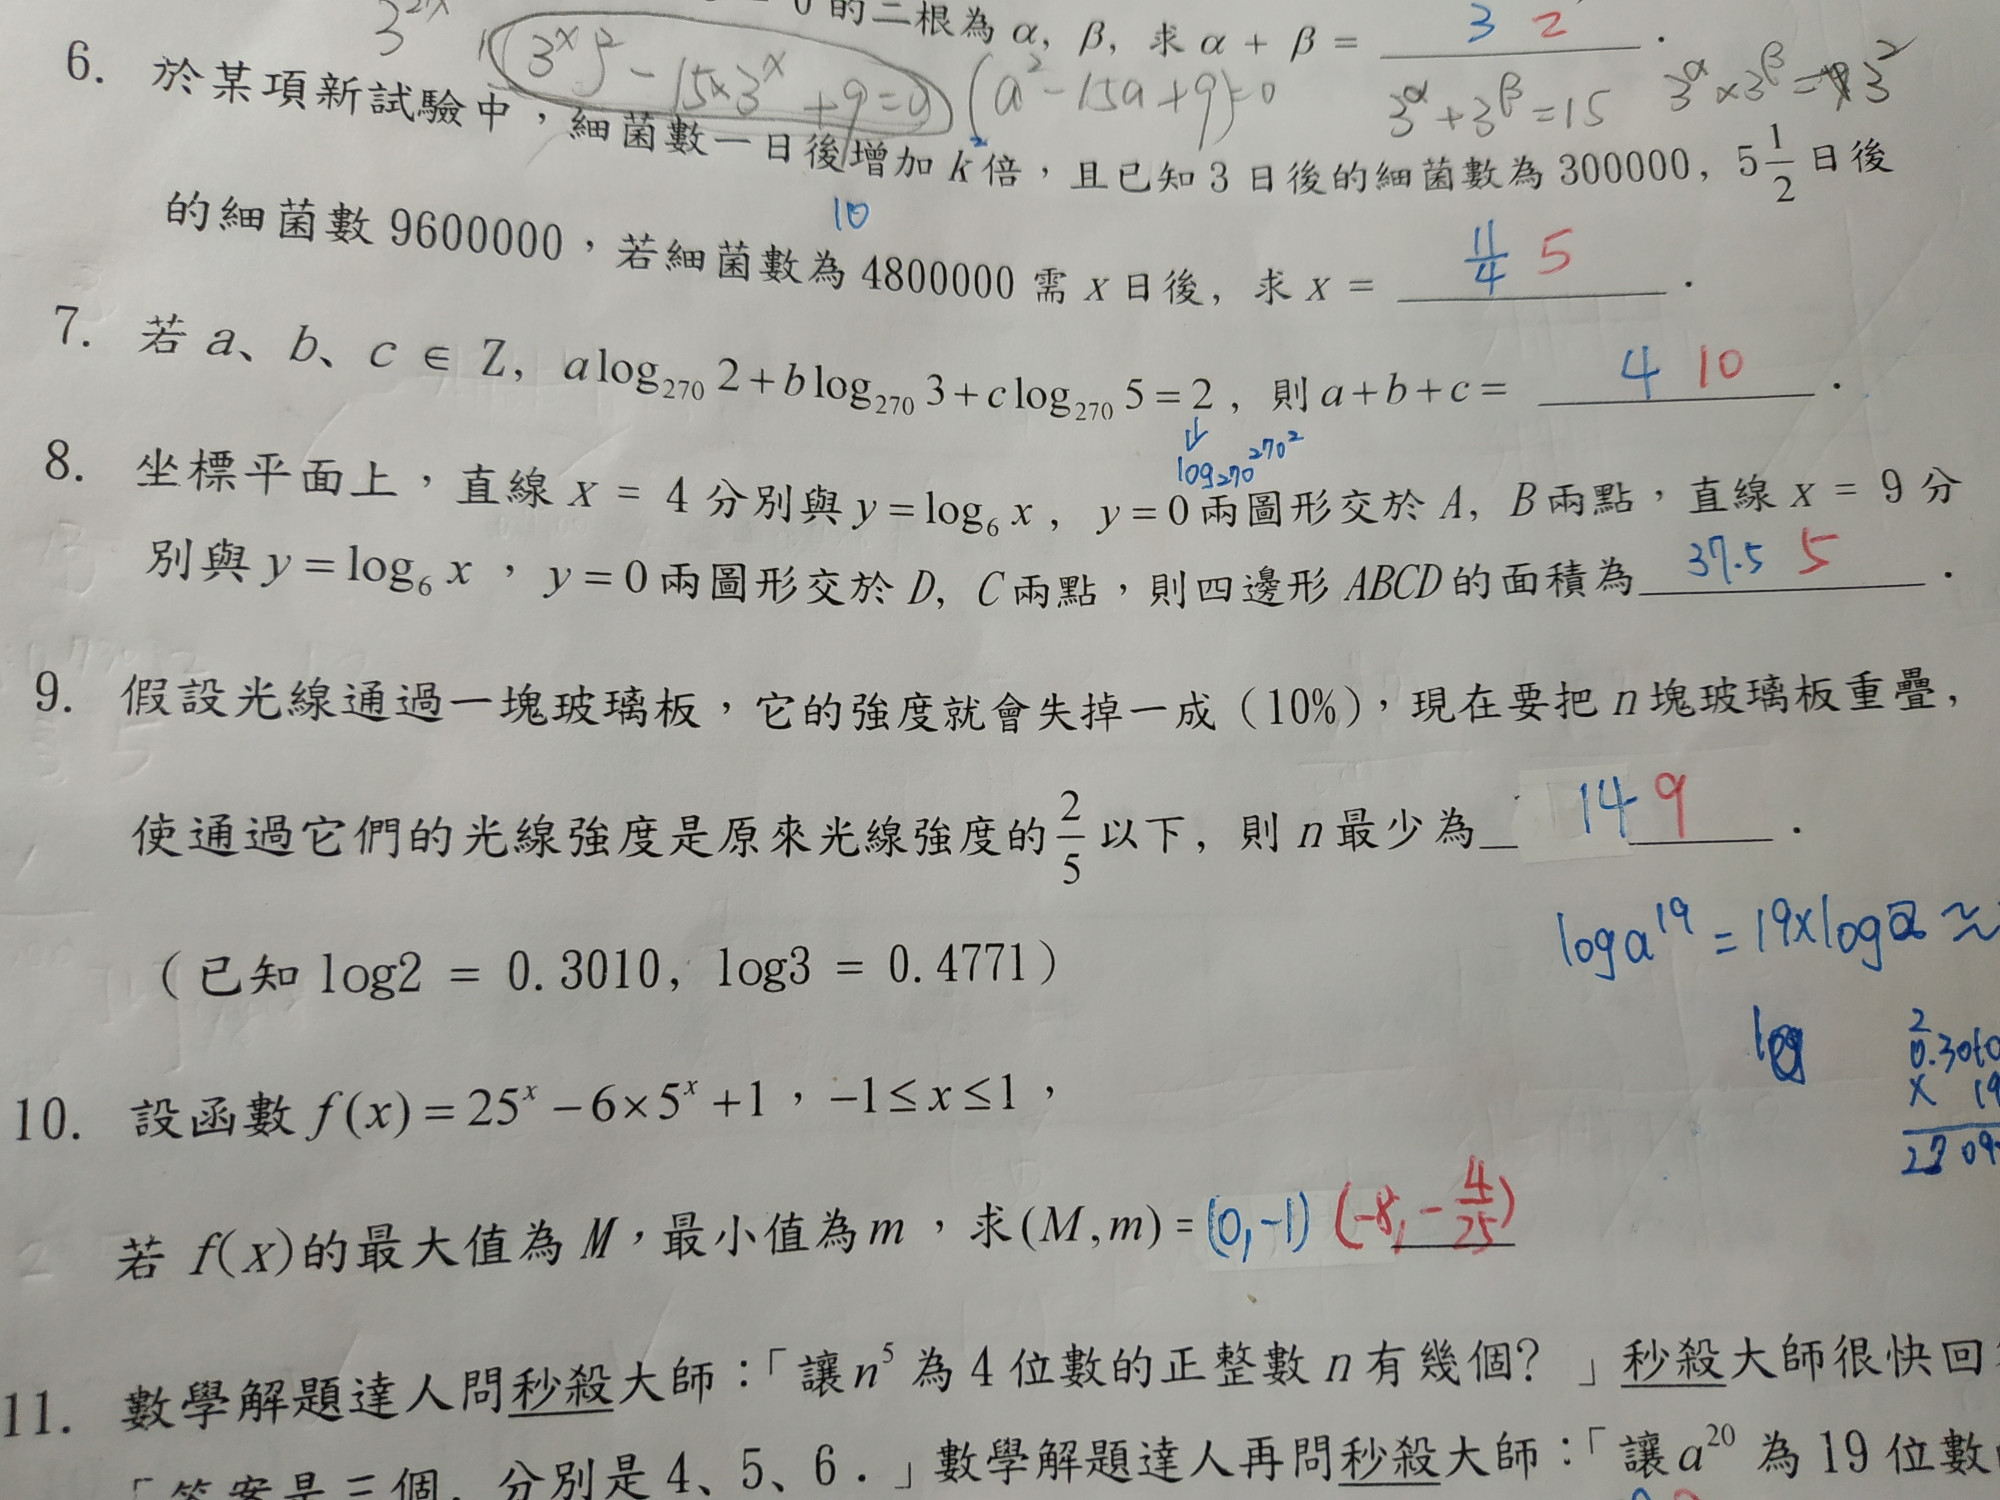 0 的二根為 α, β, 求 α + β = 3 2 .
3^{2x} (3^x)^2 - 15×3^x + 9 = 0 (a^2 - 15a + 9) = 0 3^α + 3^β = 15 3^α × 3^β = 3^2
6. 於某項新試驗中，細菌數一日後增加 k 倍，且已知 3 日後的細菌數為 300000, 5 1/2 日後
的細菌數 9600000，若細菌數為 4800000 需 x 日後, 求 x = 11/4 5 .
10
7. 若 a、b、c ∈ Z, a log₂₇₀ 2 + b log₂₇₀ 3 + c log₂₇₀ 5 = 2, 則 a + b + c = 4 10 .
↓
log₂₇₀ 270²
8. 坐標平面上，直線 x = 4 分別與 y = log₆ x, y = 0 兩圖形交於 A, B 兩點，直線 x = 9 分
別與 y = log₆ x，y = 0 兩圖形交於 D, C 兩點，則四邊形 ABCD 的面積為 37.5 5 .
9. 假設光線通過一塊玻璃板，它的強度就會失掉一成（10%），現在要把 n 塊玻璃板重疊,
使通過它們的光線強度是原來光線強度的 2/5 以下, 則 n 最少為 14 9 .
log a^{19} = 19×log a ≈
（已知 log2 = 0.3010, log3 = 0.4771）
log
0.3010
× 19
10. 設函數 f(x) = 25^x − 6×5^x + 1，−1 ≤ x ≤ 1，
若 f(x) 的最大值為 M，最小值為 m，求(M,m) = (0,-1) (-8, -4/25)
11. 數學解題達人問秒殺大師：「讓 n⁵ 為 4 位數的正整數 n 有幾個？」秒殺大師很快回
「答案是三個, 分別是 4、5、6．」數學解題達人再問秒殺大師：「讓 a²⁰ 為 19 位數